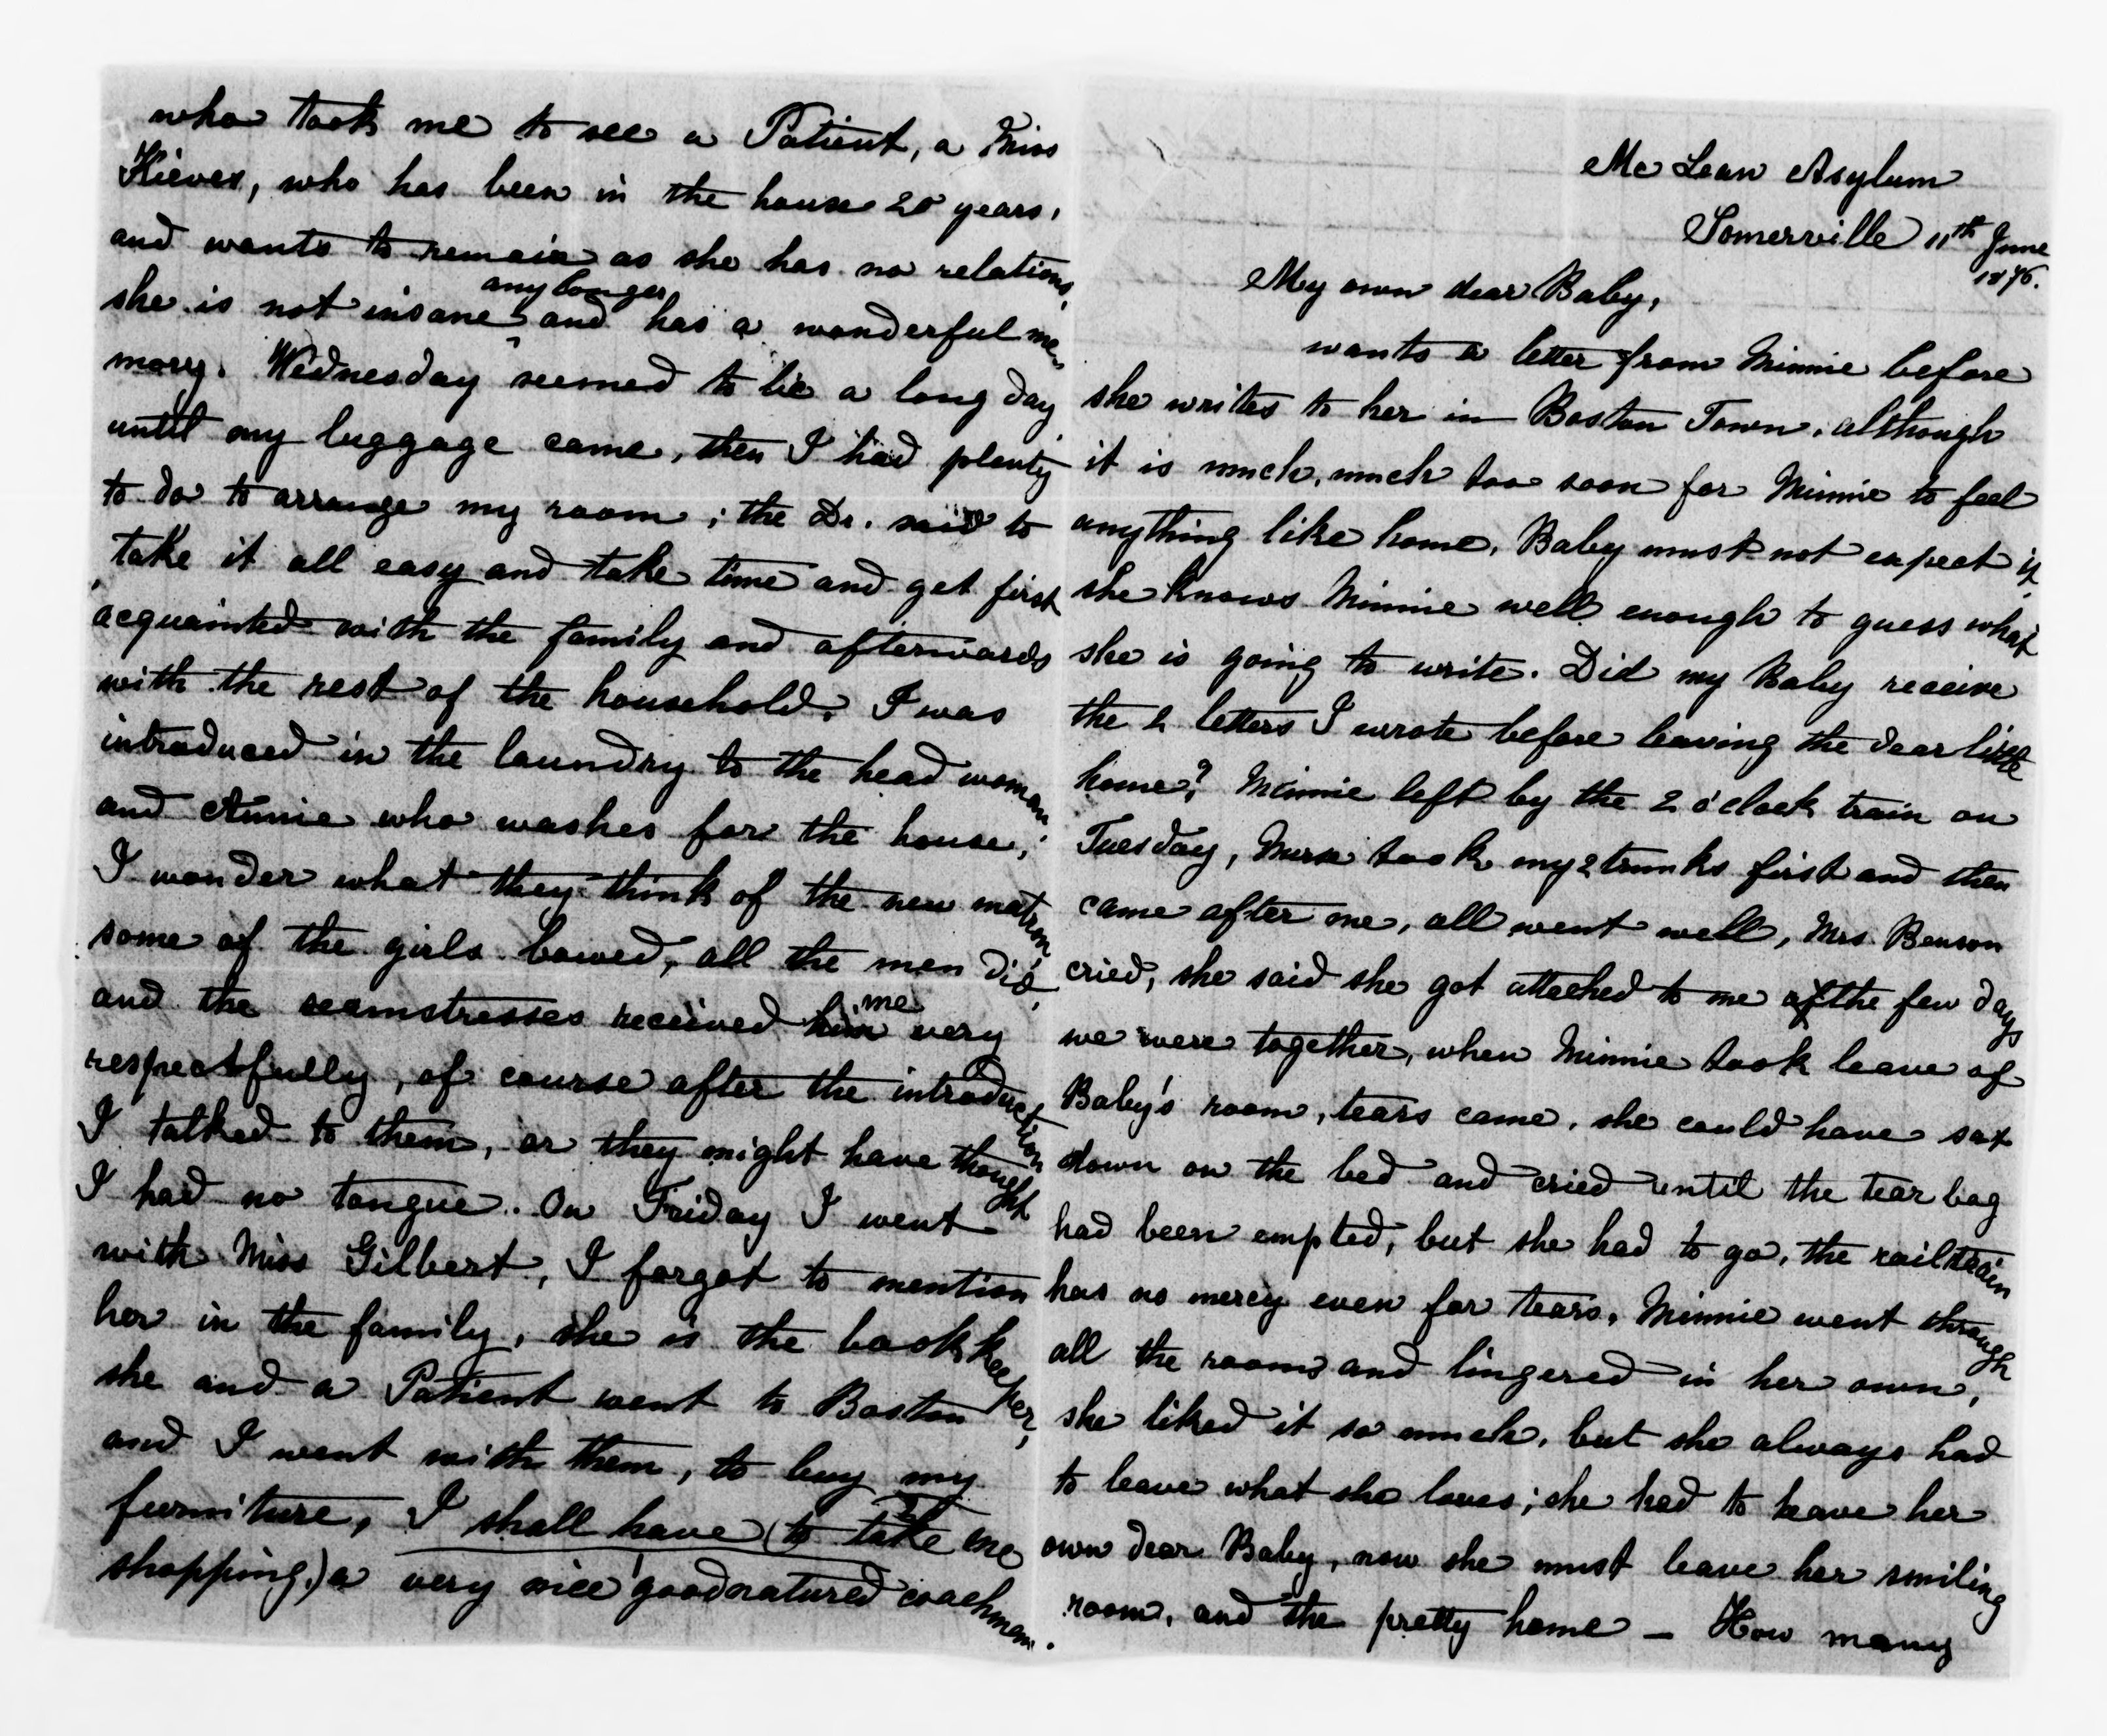 Mc Lean Asylum
Somerville 11th June
1876.
My own dear Baby,
wants a letter from Minnie before
she writes to her in Boston Town, although
it is much, much too soon for Minnie to feel
anything like home, Baby must not expect it,
she knows Minnie well enough to guess what
she is going to write. Did my Baby receive
the 2 letters I wrote before leaving the dear little
home? Minnie left by the 2 o'clock train on
Tuesday, Nurse took my 2 trunks first and then
came after me, all went well, Mrs. Benson
cried, she said she got atteched to me of the few days
we were together, when Minnie took leave of
Baby's room, tears came, she could have sat
down on the bed and cried until the tear bag
had been empted, but she had to go, the railtrain
has no mercy even for tears, Minnie went through
all the rooms and lingered in her own,
she liked it so much, but she always had
to leave what she loves; she had to leave her
own dear Baby, now she must leave her smiling
room, and the pretty home – How many
who took me to see a Patient, a Miss
who has been in the house 20 years,
and wants to remain as she has no relations,
she is not insane any longer, and has a wonderful me-
mory. Wednesday seemed to be a long day
until my luggage came, then I had plenty
to do to arrange my room; the Dr. said to
take it all easy and take time and get first
acquainted with the family and afterwards
with the rest of the household. I was
introduced in the laundry to the head woman,
and Annie who washes for the house,
I wonder what they think of the new matron,
some of the girls bowed, all the men did,
and the seamstresses received him me very
respectfully, of course after the introduction
I talked to them, or they might have thought
I had no tongue. On Friday I went
with Miss Gilbert, I forgot to mention
her in the family, she is the bookkeeper,
she and a Patient went to Boston
and I went with them, to buy my
furniture, I shall have (to take me
shopping) a very nice goodnatured coachman.